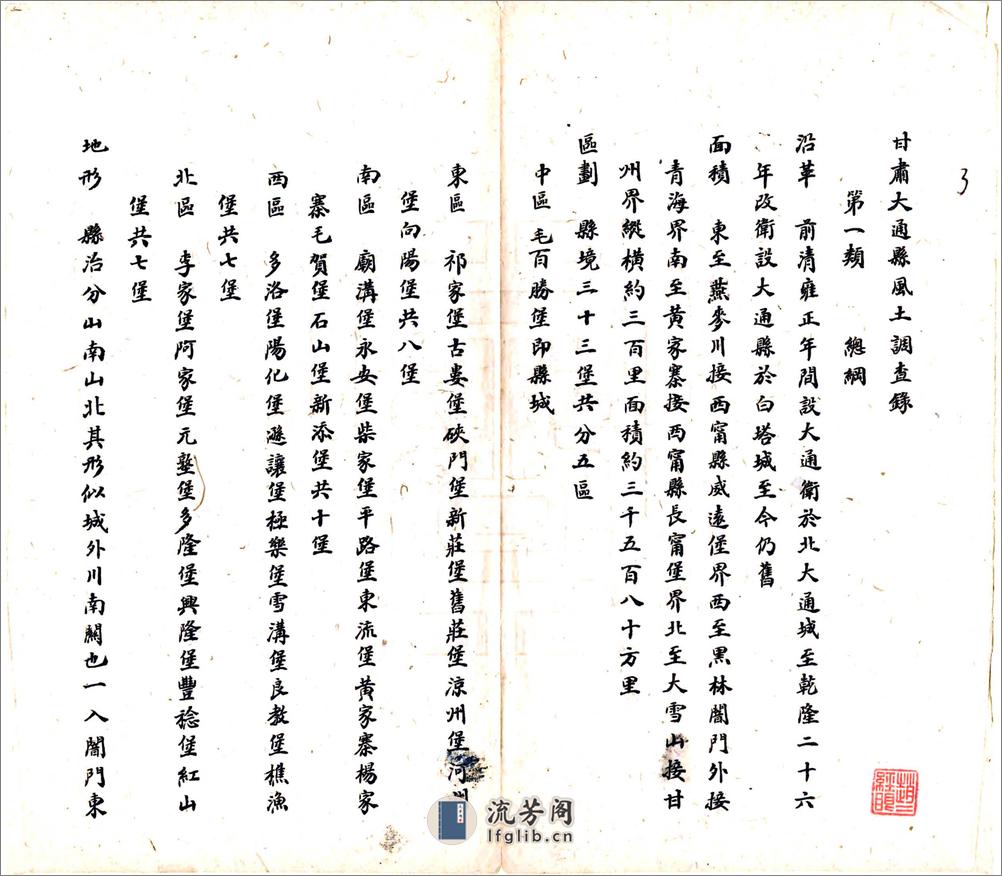 3
甘肅大通縣風土調查錄
第一類 總綱
沿革 前清雍正年間設大通衛於北大通城至乾隆二十六
年改衛設大通縣於白塔城至今仍舊
面積 東至燕麥川接西甯縣威遠堡界西至黑林闇門外接
青海界南至黃家寨接西甯縣長甯堡界北至大雪山接甘
州界縱橫約三百里面積約三千五百八十方里
區劃 縣境三十三堡共分五區
中區毛百勝堡即縣城
東區 祁家堡古婁堡硤門堡新莊堡舊莊堡涼州堡河州
堡向陽堡共八堡
南區 廟溝堡永安堡柴家堡平路堡東流堡黃家寨楊家
寨毛賀堡石山堡新添堡共十堡
西區 多洛堡陽化堡遜讓堡極樂堡雪溝堡良教堡樵漁
堡共七堡
北區 李家堡阿家堡元墪堡多隆堡興隆堡豐稔堡紅山
堡共七堡
地形 縣治分山南山北其形似城外川南關也一入闇門東
流芳阁
lfglib.cn